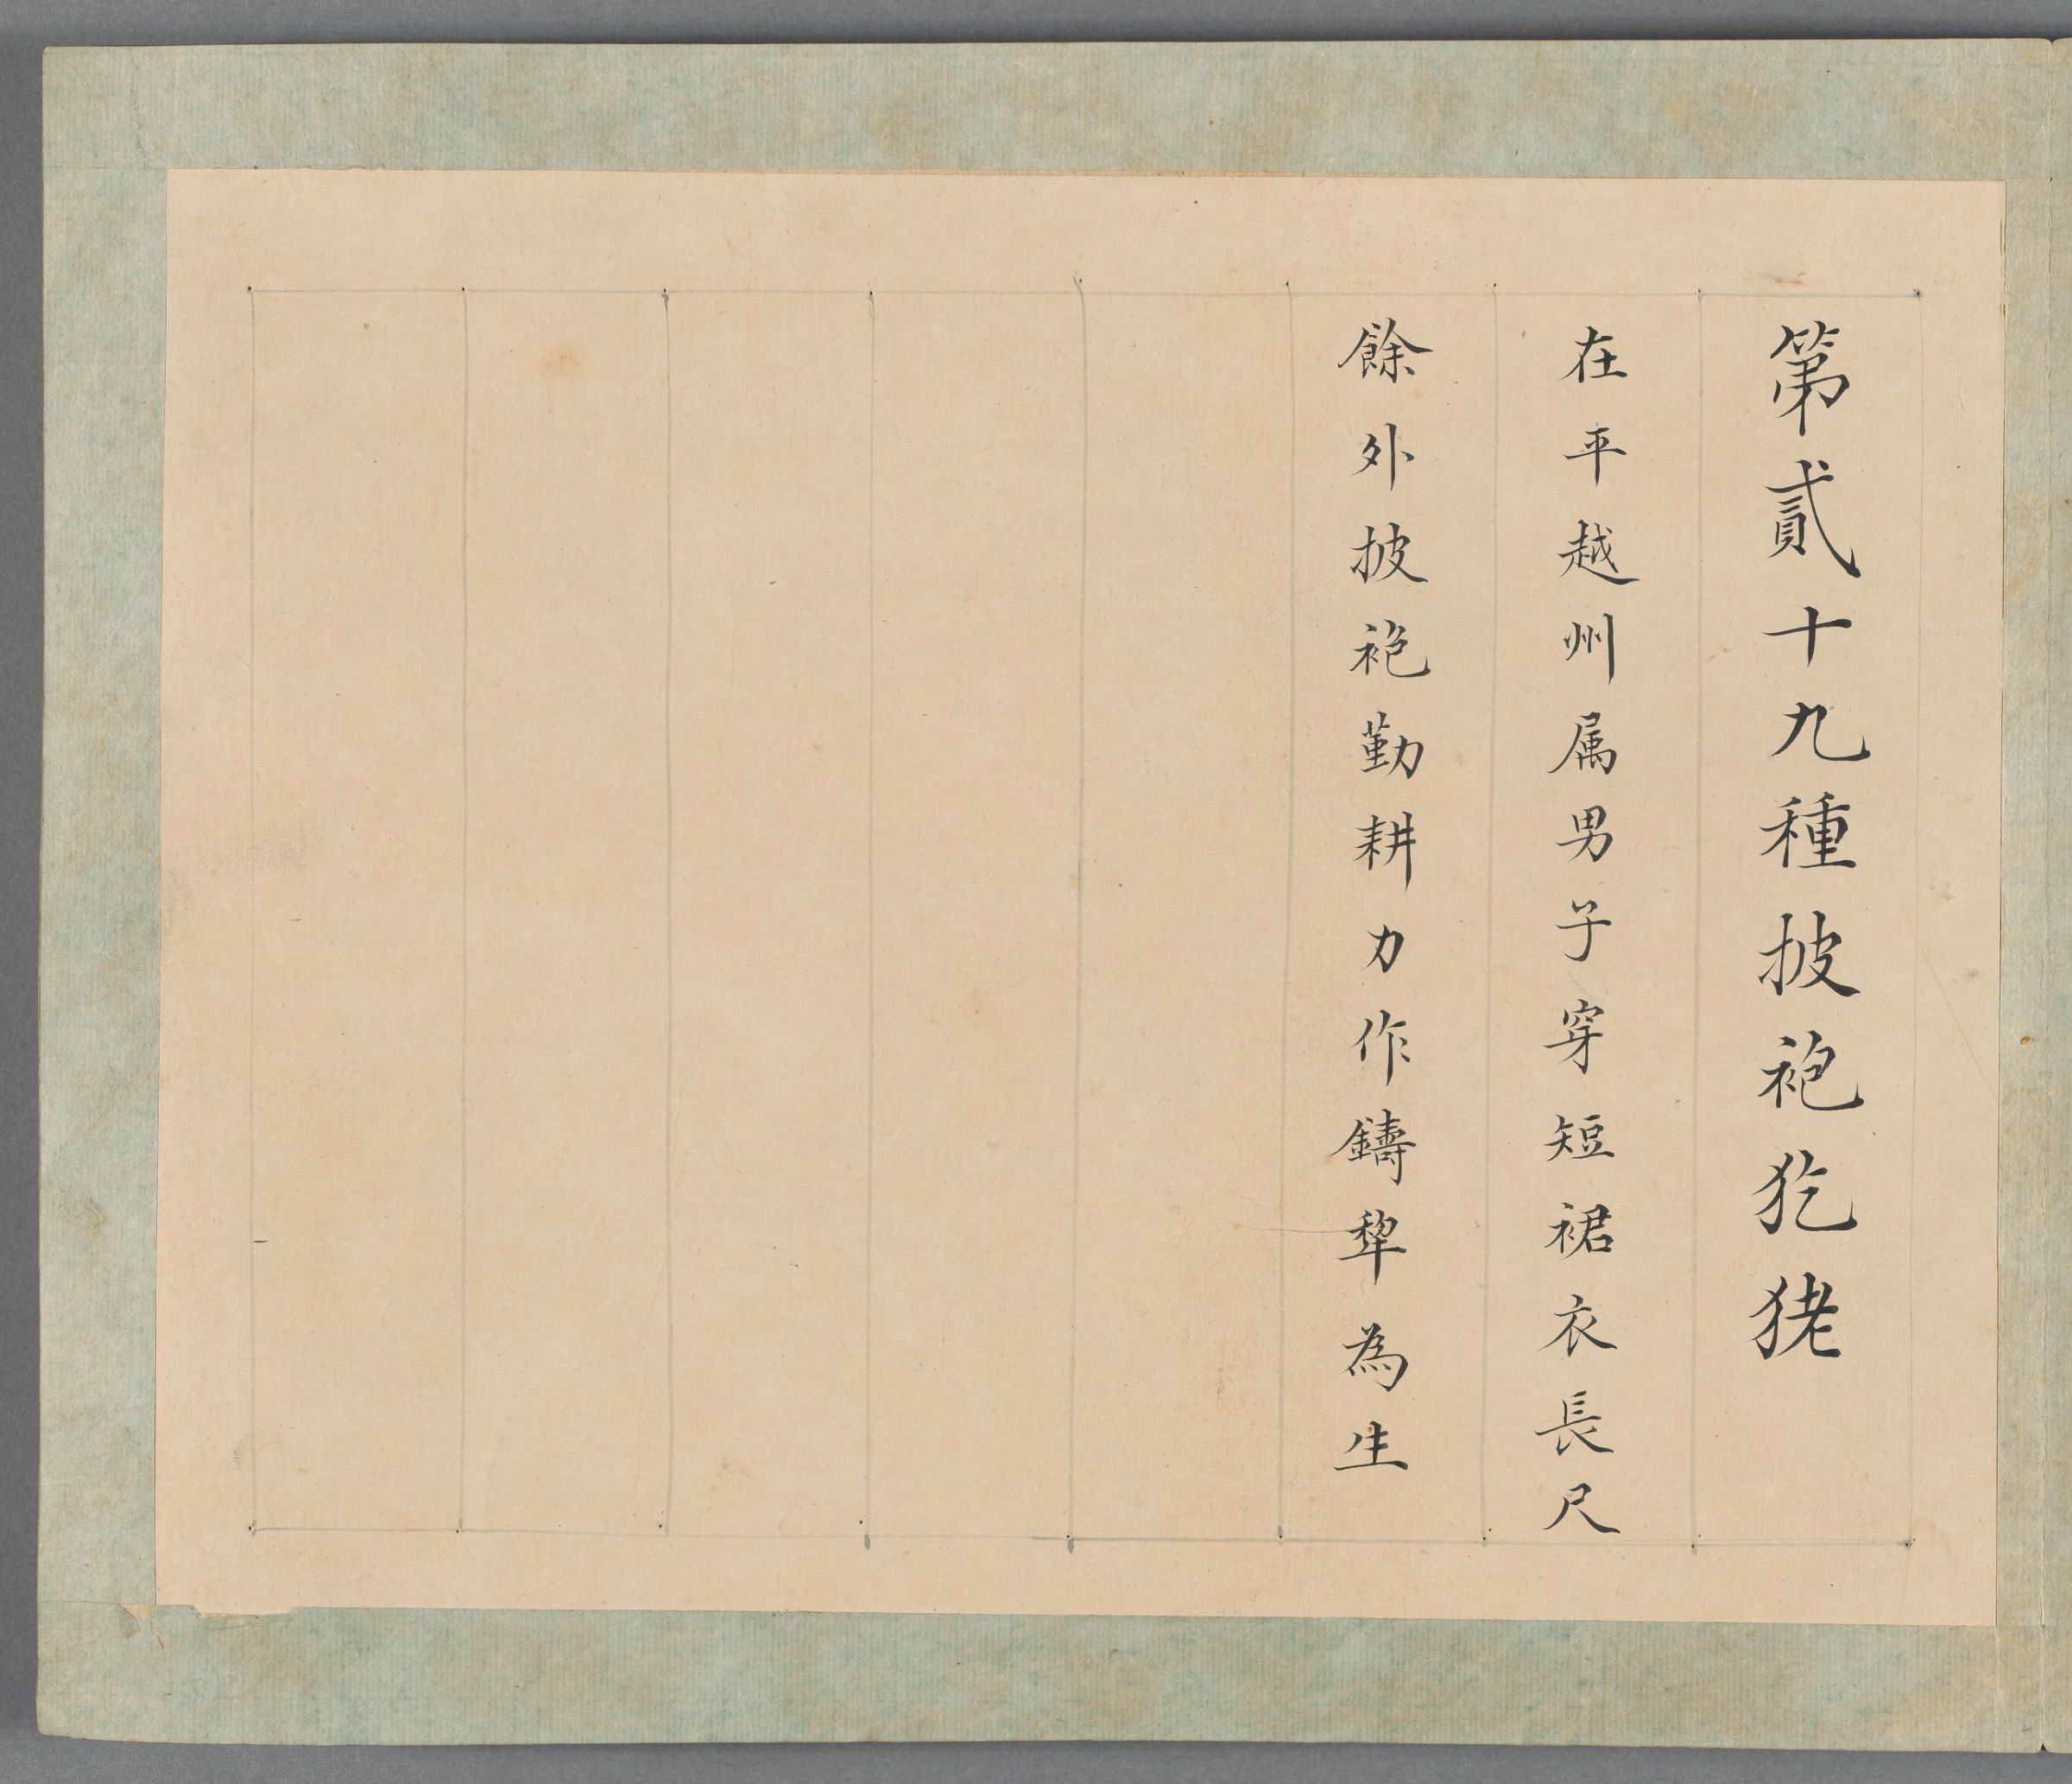 第貳十九種披袍犵狫
在平越州属男子穿短裙衣長尺
餘外披袍勤耕力作鑄犂為生